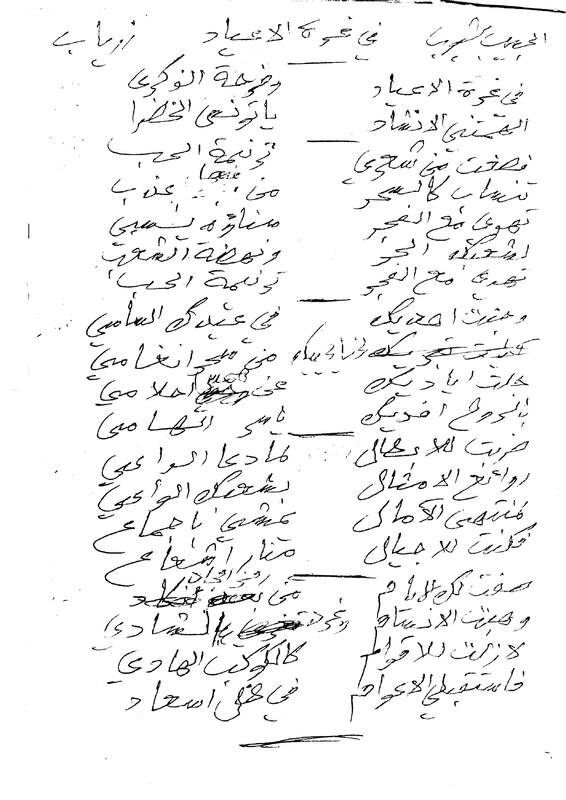 في غرة الاعياد زرياب
في غرة الاعياد وفرحة الذكرى
الهمتني الانشاد يا تونس الخضرا
فصغت من شعري ترنيمة الحب
تنساب كالسحر من عذب
تهوى مع الفجر
لشعبك الحر ونهضة الشعب
تهدى مع الفجر ترنيمة الحب
وجئت احديك في عيدك السامي
من سحر انغامي
جلت اياديك عن احلامي
بالروح افديك يا سر الهامي
ضربت للابطال لما دعا الداعي
روائع الامثال بشعبك الواعي
لمنتهى الآمال تمشي باجماع
فكنت للاجيال منار اشعاع
صفت لك الايام من
وهبت الانسام وغرد الشادي
لازلت للاقوام كالكوكب الهادي
فاستقبلي الاعوام في اسعاد